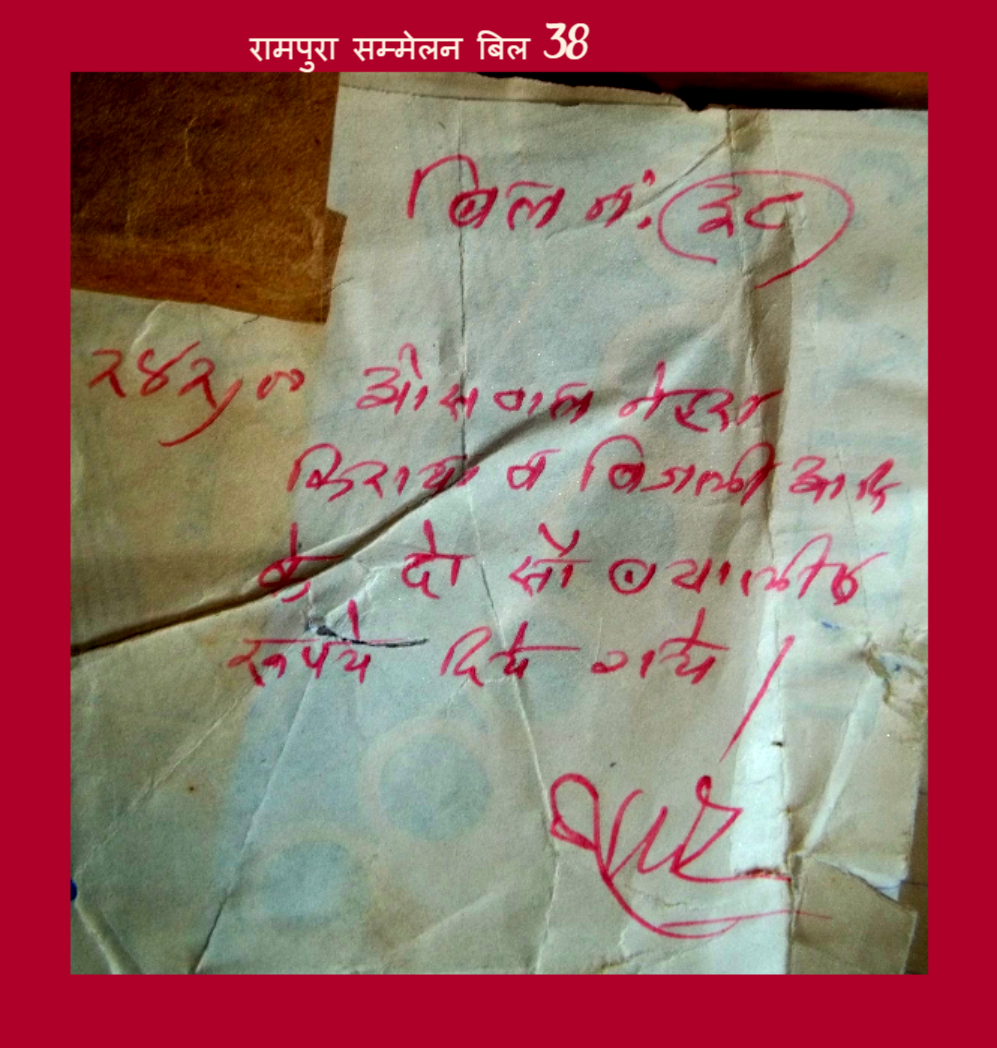 रामपुरा सम्मेलन बिल 38
बिल नं. ३८
२४२)०० ओसवाल नोहरा
किराया व बिजली आदि
के दो सौ बयालीस
रूपये दिये गये।